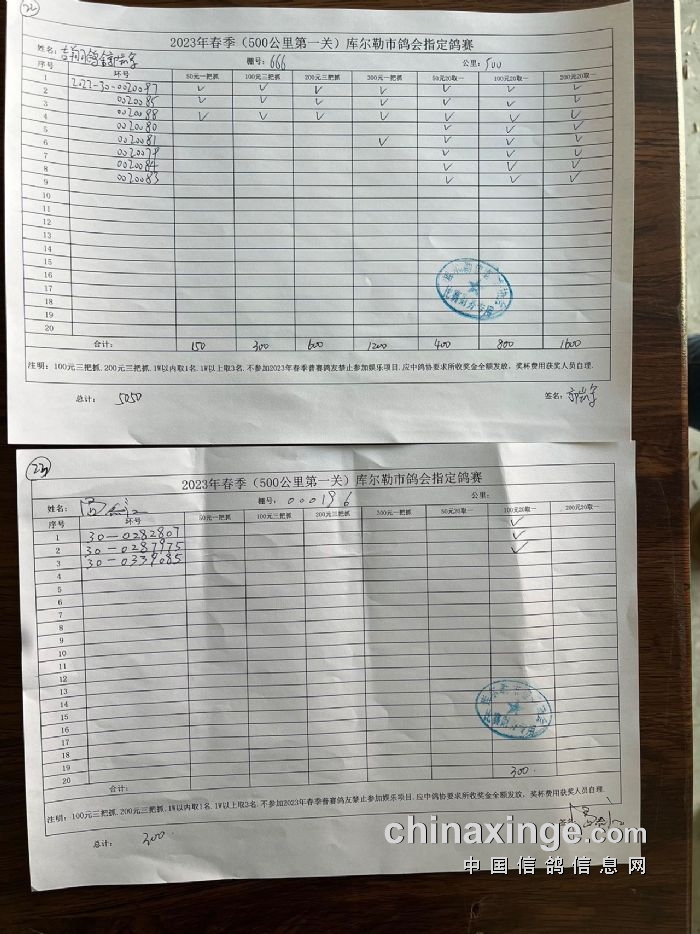 22
2023年春季（500公里第一关）库尔勒市鸽会指定鸽赛
姓名： 棚号：666 公里：500
序号 环号 50元一把抓 100元三把抓 200元三把抓 300元一把抓 50元20取一 100元20取一 200元20取一
1
2 2022-30-0020087 ✓ ✓ ✓ ✓ ✓ ✓ ✓
3 0020085 ✓ ✓ ✓ ✓ ✓ ✓ ✓
4 0020088 ✓ ✓ ✓ ✓ ✓ ✓ ✓
5 0020080 ✓ ✓ ✓
6 0020081 ✓ ✓ ✓ ✓
7 0020079 ✓ ✓ ✓
8 0020084 ✓ ✓ ✓
9 0020083 ✓ ✓ ✓
10
11
12
13
14
15
16
17
18
19
20
合计： 150 300 600 1200 400 800 1600
注明：100元三把抓.200元三把抓.1W以内取1名.1W以上取3名.不参加2023年春季普赛鸽友禁止参加娱乐项目.应中鸽协要求所收奖金全额发放，奖杯费用获奖人员自理.
总计：5050 签名：
23
2023年春季（500公里第一关）库尔勒市鸽会指定鸽赛
姓名： 棚号：000196 公里：
序号 环号 50元一把抓 100元三把抓 200元三把抓 300元一把抓 50元20取一 100元20取一 200元20取一
1 30-0282807 ✓
2 30-0287975 ✓
3 30-0339085 ✓
4
5
6
7
8
9
10
11
12
13
14
15
16
17
18
19
20
合计： 300.
注明：100元三把抓.200元三把抓.1W以内取1名.1W以上取3名.不参加2023年春季普赛鸽友禁止参加娱乐项目.应中鸽协要求所收奖金全额发放，奖杯费用获奖人员自理.
总计：300. 签名：
chinaxinge.com
中国信鸽信息网